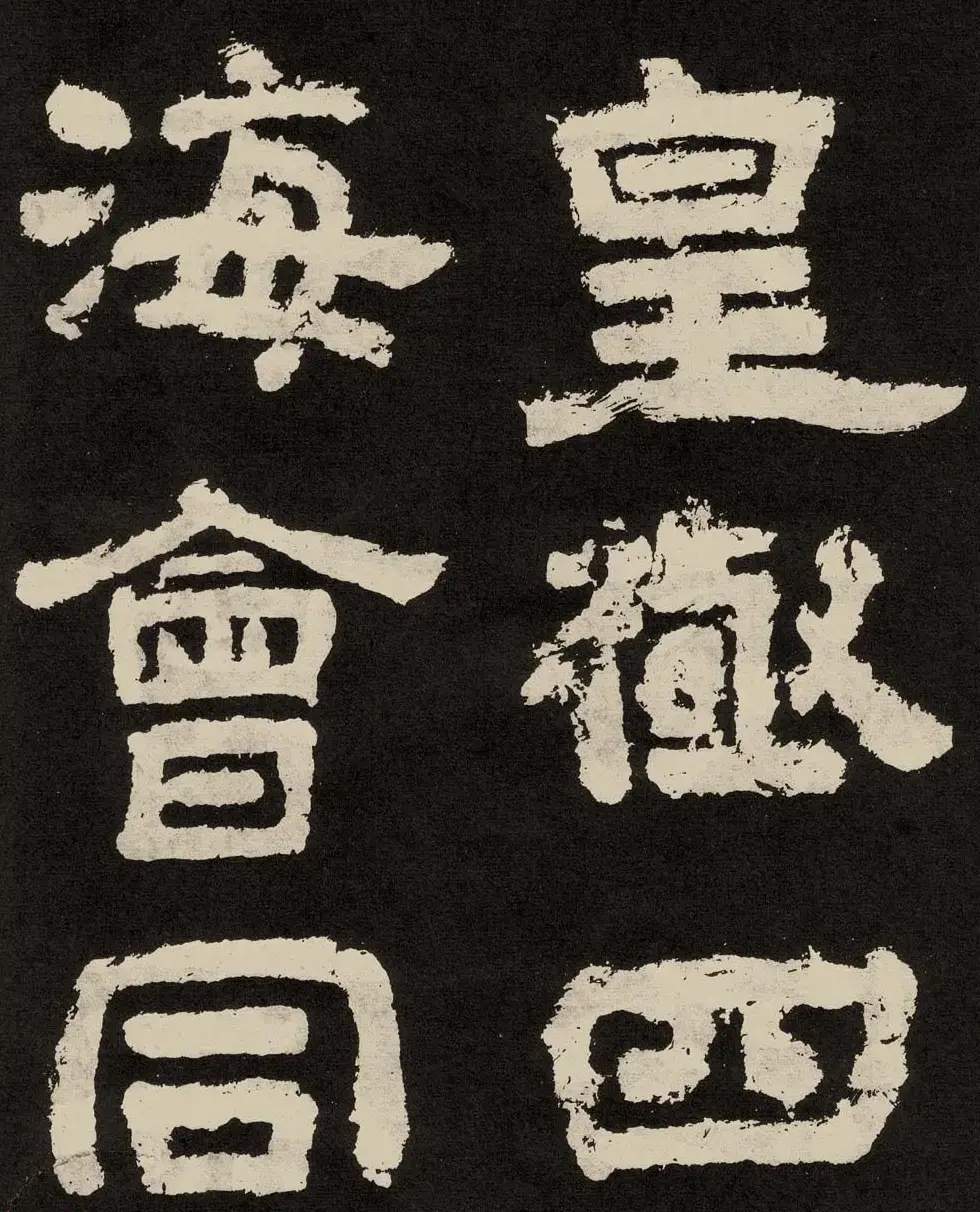 皇極四
海會同